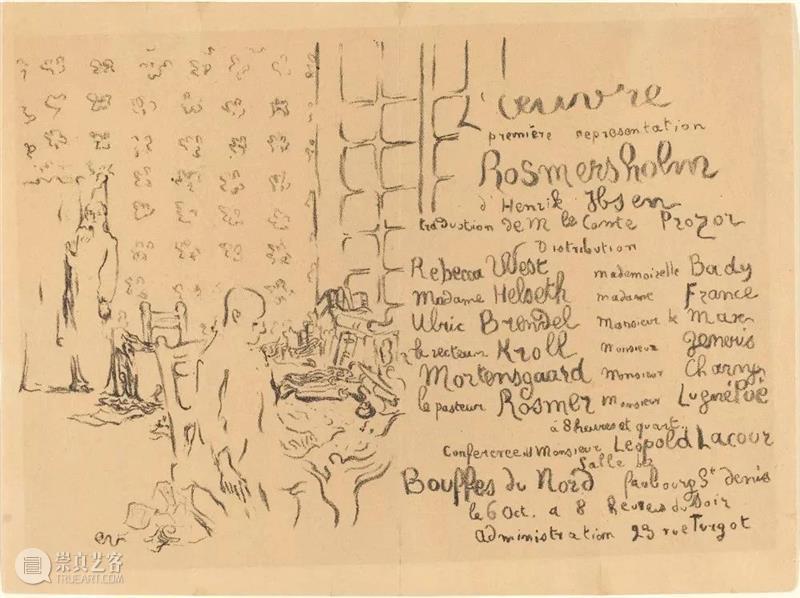 L'œuvre
première representation
Rosmersholm
d'Henrik Ibsen
traduction de M le Comte Prozor
Distribution
Rebecca West mademoiselle Bady
Madame Helseth madame France
Ulric Brendel Monsieur de Max
le recteur Kroll Monsieur Jenevis
Mortensgaard Monsieur Charny
le pasteur Rosmer Monsieur Lugné Poë
à 8 heures et quart.
Conference de Monsieur Leopold Lacour
Salle des
Bouffes du Nord faubourg St denis
le 6 Oct. a 8 heures du Soir
administration 23 rue Turgot
ev
崇真艺客
TRUEART.COM